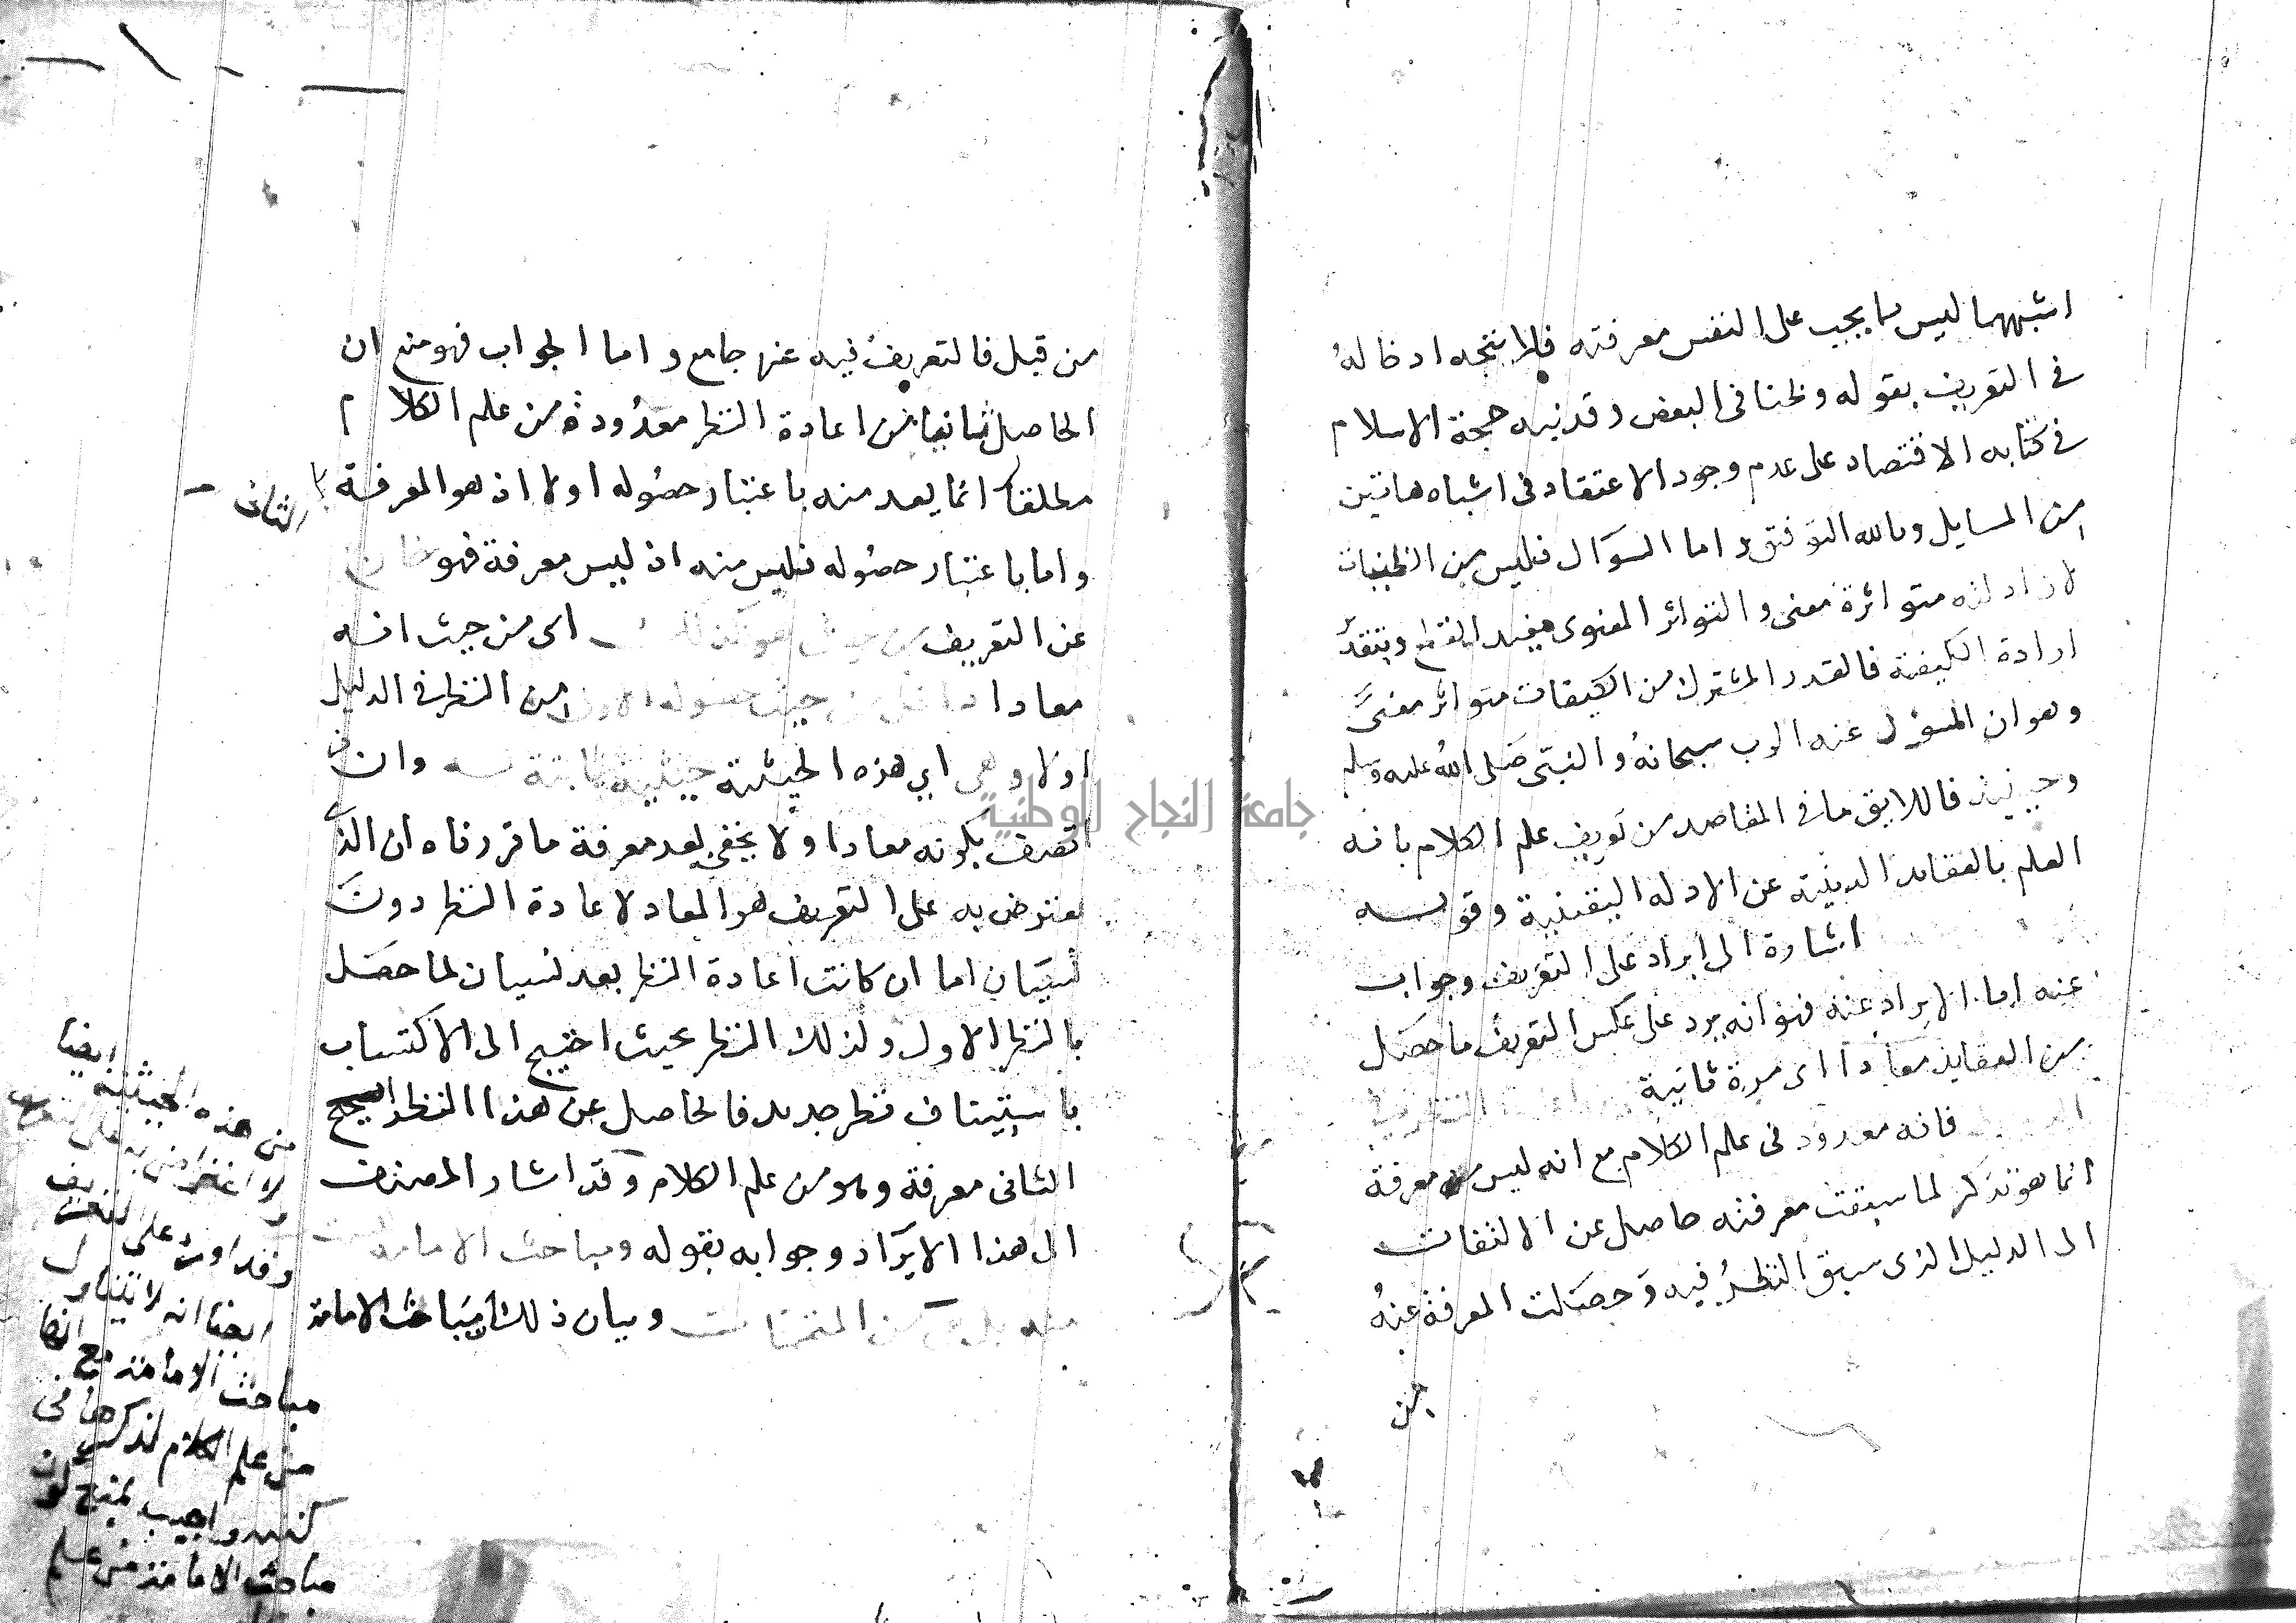 اشبههما ليس مما يجب على النفس معرفته فلا يتجه ادخاله
في التعريف بقوله وظنا في البعض وقد نبه حجة الاسلام
في كتابه الاقتصاد على عدم وجود الاعتقاد في اشباه هاتين
من المسايل وبالله التوفيق واما السؤال فليس من الظنيات
لان ادلته متواترة معنى والتواتر المعنوى مفيد للقطع وبتقدير
ارادة الكيفية فالقدر المشترك من الكيفيات متواتر معنىً
وهو ان المسؤل عنه الرب سبحانه والنبى صَلى الله عليه وسلم
وحينيذ فاللايق ما في المقاصد من تعريف علم الكلام بانه
العلم بالعقايد الدينية عن الادله اليقينية وقولـــه
اشارة الى ايراد على التعريف وجواب
عنه اما الايراد عنه فهو انه يرد على عكس التعريف ما حصَل
من العقايد معادا اى مرة ثانية
فانه معدود في علم الكلام مع انه ليس معرفة
انما هو تذكر لما سبقت معرفته حاصل عن الالتفات
الى الدليل الذى سبق النظرُ فيه وَحصَلت المعرفة عنهُ
من
من قبل فالتعريف فيه غير جامع واما الجواب فهو منع ان
الحاصل ثانيا من اعادة النظر معدُودة من علم الكلام
مطلقا انما يعد منه باعتبار حصُوله اولا اذ هو المعرفة
الثانى
واما باعتبار حصُوله فليس منه اذ ليس معرفة فهو
عن التعريف اى من حيث انه
معادا من حيث حصوله من النظر في الدليل
اولا وهى اي هذه الحيثية حيثية ثابتة لــه وان
اتصف بكونه معادا ولا يخفى بعد معرفة ما قررناه ان الذى
يعترض به على التعريف هو المعاد لاعادة النظر دونَ
نسيَان اما ان كانت اعادة النظر بعد نسيان لما حصَل
بالنظر الاول ولذلك النظر بحيث احتيج الى الاكتساب
باستيناف نظر جديد فالحاصل عن هذا النظر الصحيح
الثانى معرفة وهو من علم الكلام وقد اشار المصنف
الى هذا الايَراد وجوابه بقوله ومباحث الامامة
منه بل من المتممات وبيان ذلك ان مبَاحث الامامة
من هذه الحيثية ايضا
ولا اعتراض به على التعريف
وقد اورد على التعريف
ايضا انه لا يتناول
مباحث الامامة مع انها
من علم الكلام لذكرها في
كتبه واجيب بمنع كون
مباحث الامامة من علم
جامعة النجاح الوطنية